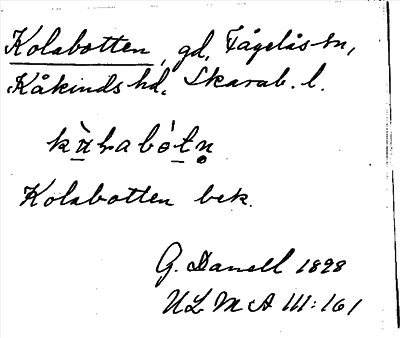 Kolabotten, gd, Fågelås sn,
Kåkinds hd, Skarab. l.
Kolabotten bek.
G. Danell 1898
ULMA III:161